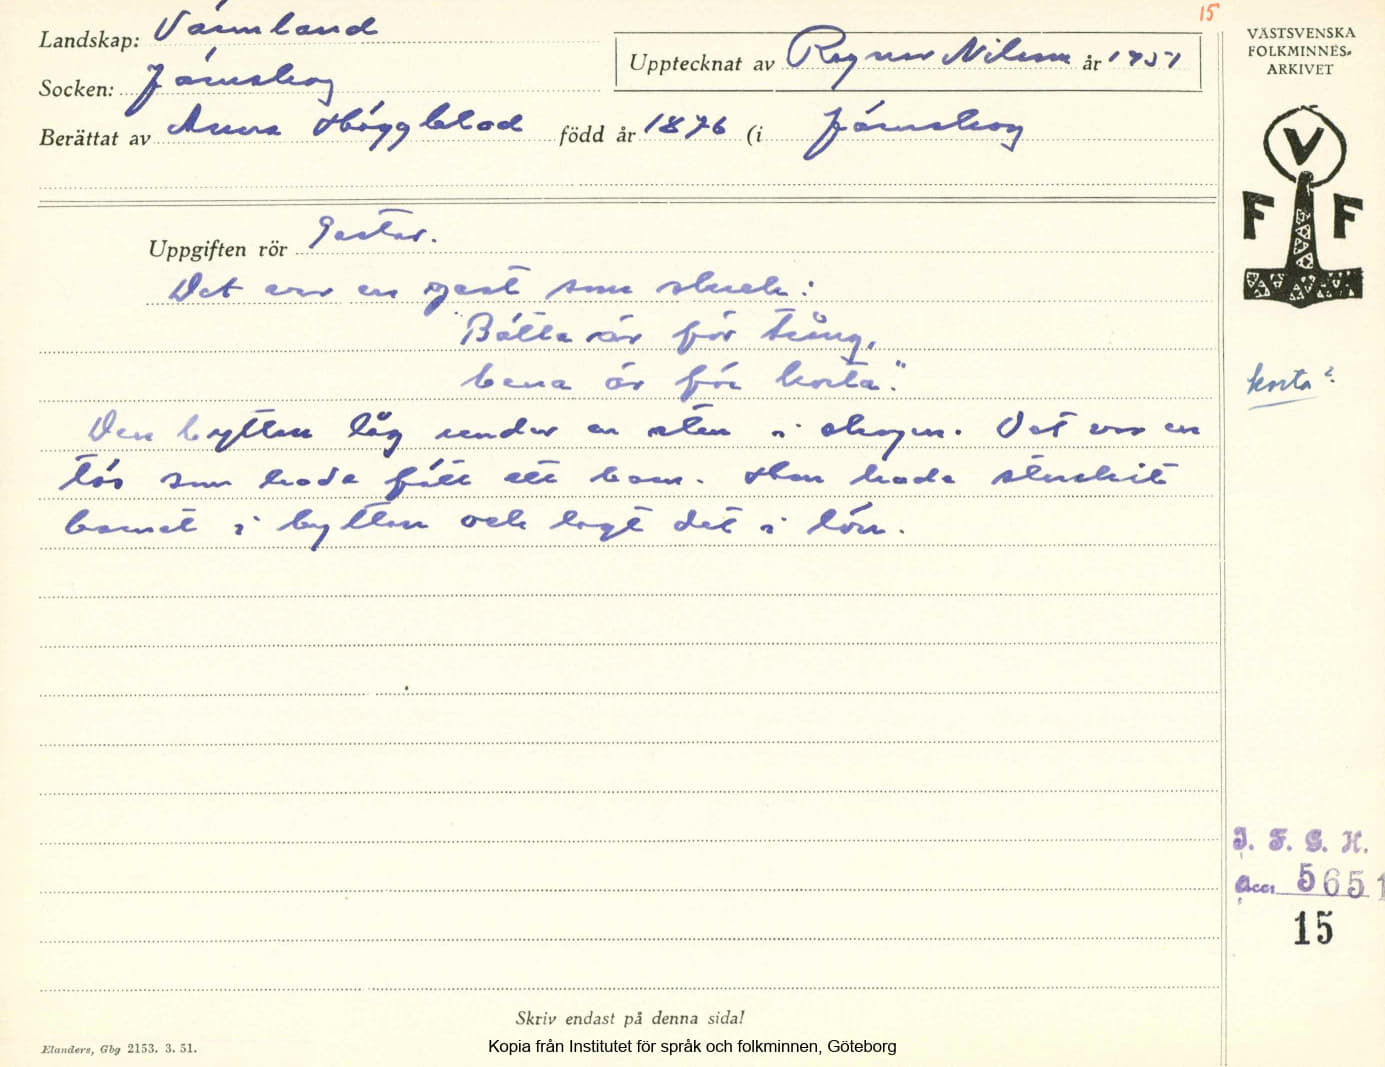 15
Landskap: Värmland
Socken: Järnskog
Upptecknat av Ragnar Nilsson år 1951
Berättat av Anna Häggblad född år 1876 (i Järnskog
VÄSTSVENSKA
FOLKMINNES-
ARKIVET
V
F F
Uppgiften rör Gastar.
Det var en gast som skrek:
"Bötta är för trång,
bena är för korta."
korta?
Den byttan låg under en sten i skogen. Det var en
tös som hade fått ett barn. Hon hade stuckit
barnet i byttan och lagt det i lön.
I. F. G. H.
Acc: 5651
15
Skriv endast på denna sida!
Elanders, Gbg 2153. 3. 51.
Kopia från Institutet för språk och folkminnen, Göteborg